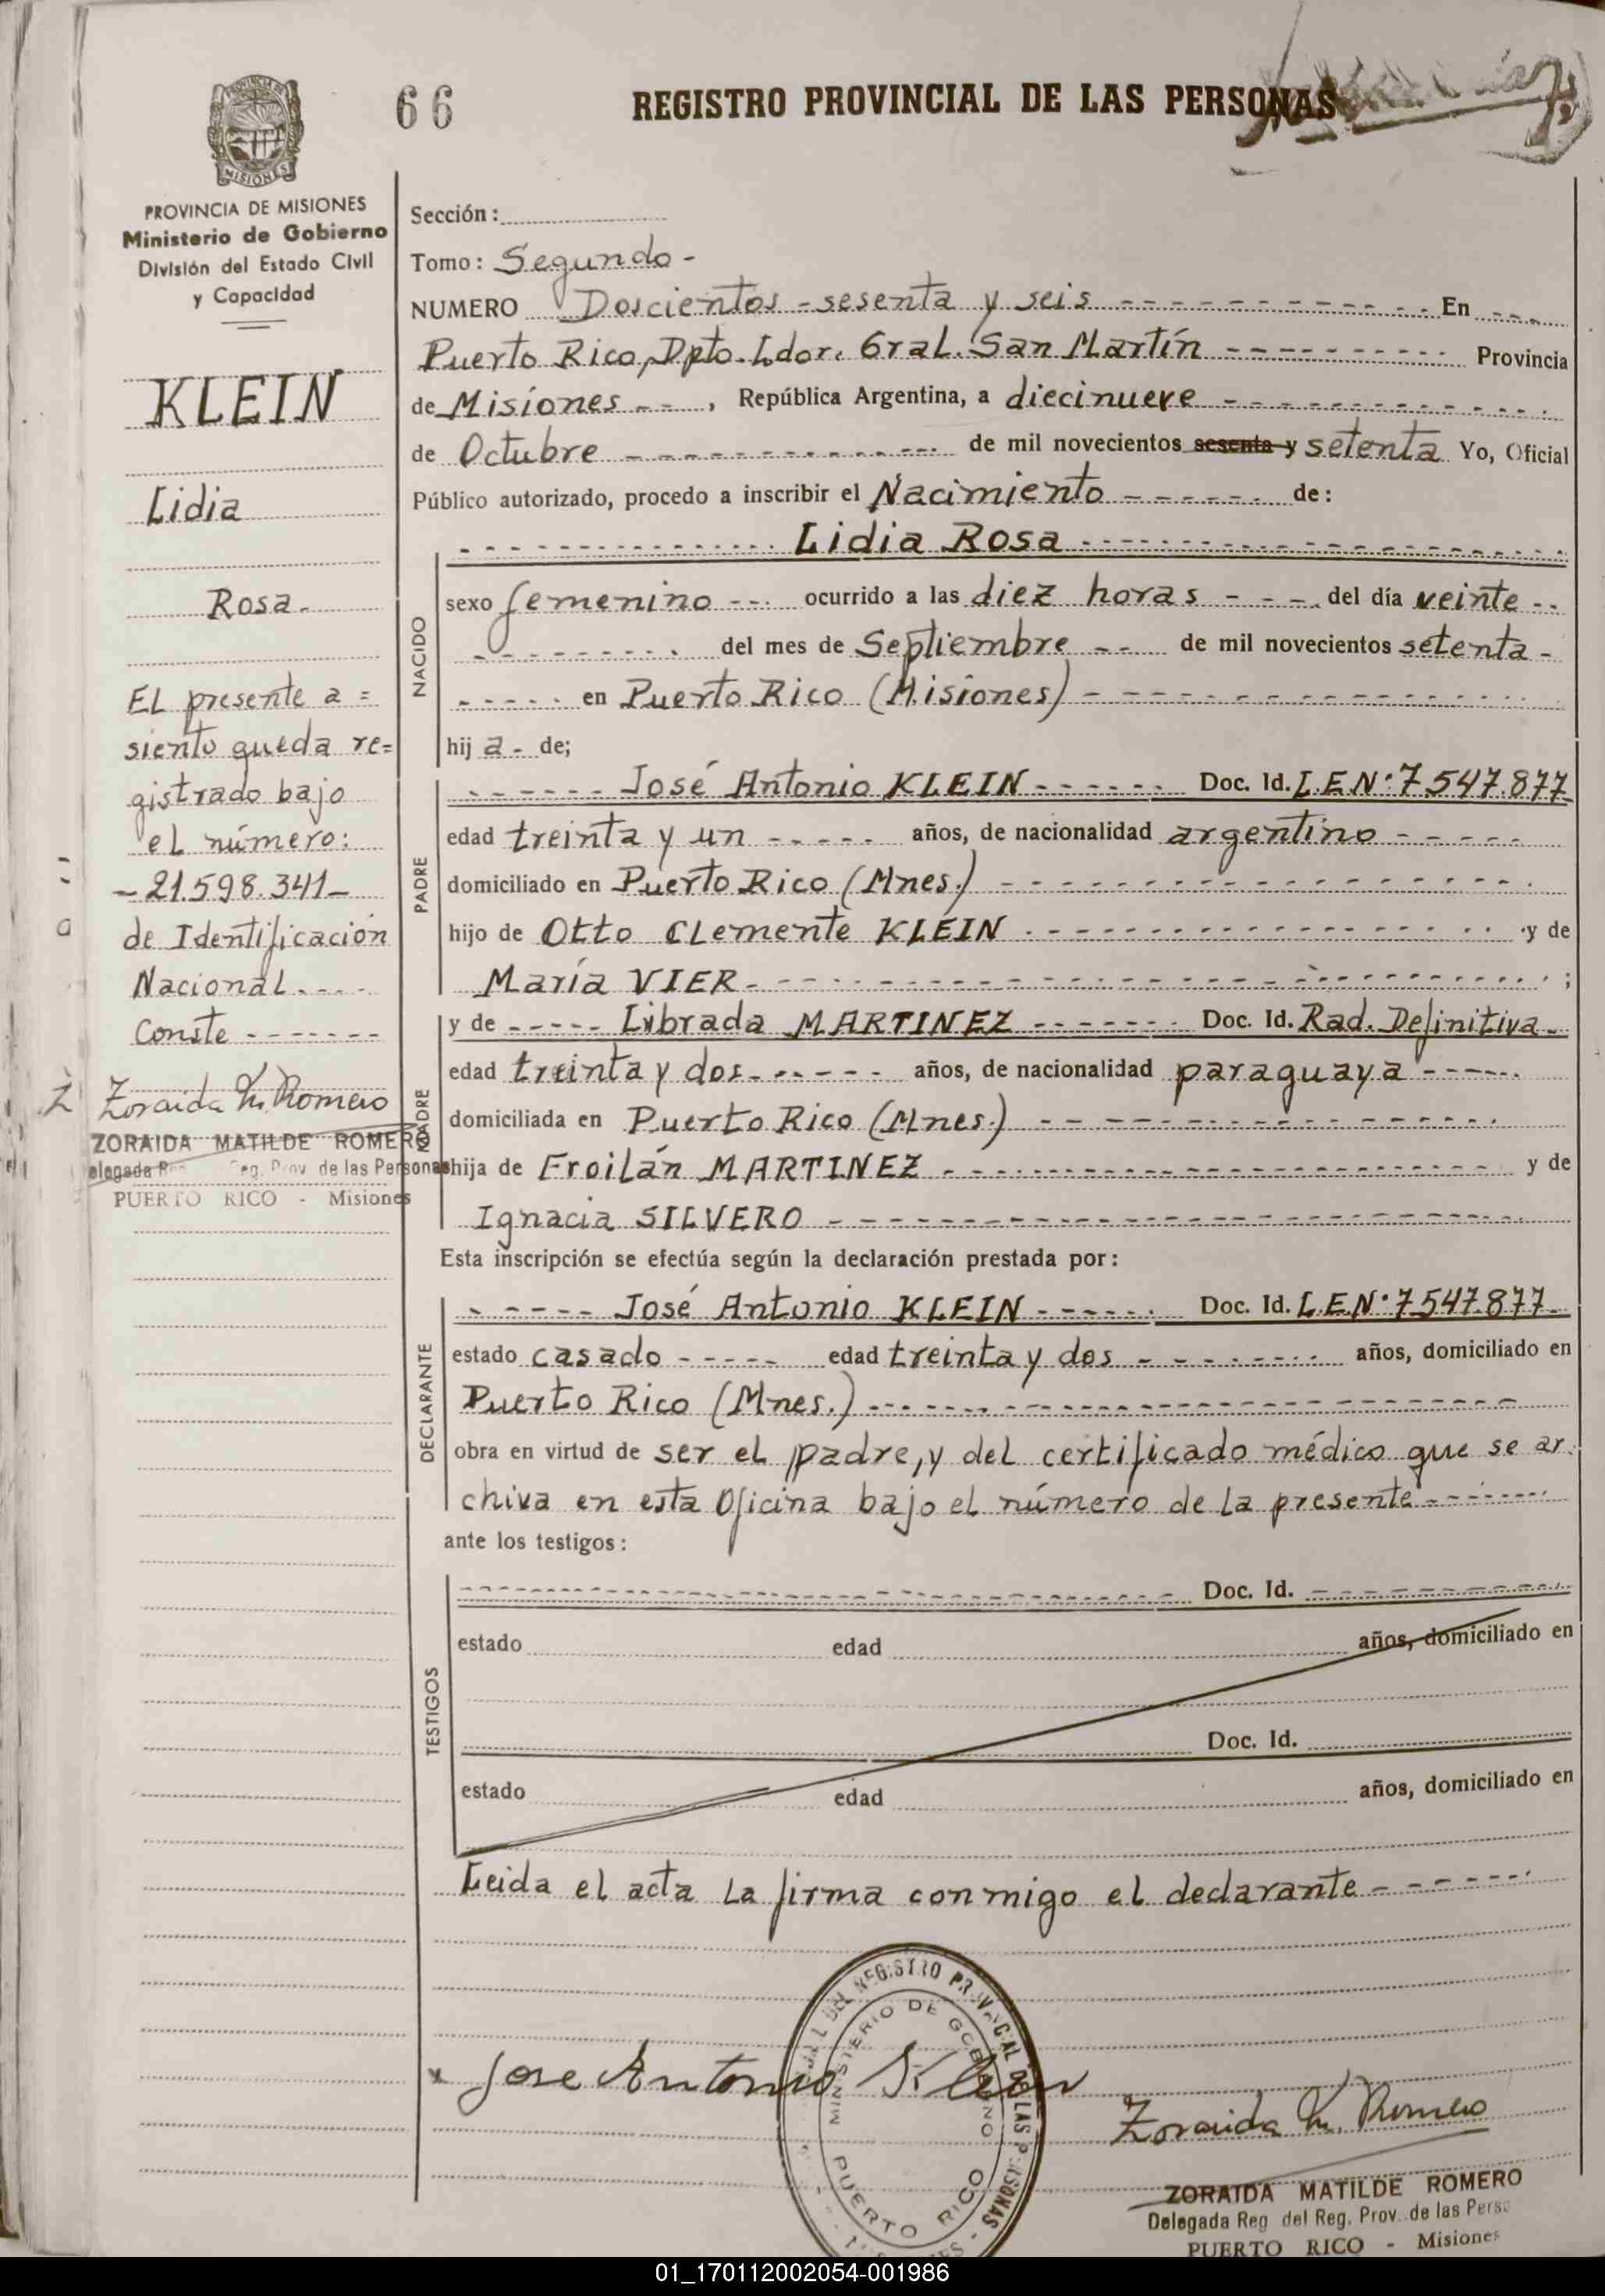 66
REGISTRO PROVINCIAL DE LAS PERSONAS
MISIONES
PROVINCIA DE MISIONES
Ministerio de Gobierno
División del Estado Civil
y Capacidad
KLEIN
Lidia
Rosa.
EL presente a=
siento queda re=
gistrado bajo
el número:
-21.598.341-
de Identificación
Nacional.----
Conste -------
Zoraida M. Romero
ZORAIDA MATILDE ROMERO
Reg. Prov de las Personas
PUERTO RICO - Misiones
Sección:
Tomo: Segundo-
NUMERO Doscientos-sesenta y seis ------------ En ---
Puerto Rico, Dpto. Ldor. Gral. San Martín ---------- Provincia
de Misiones --, República Argentina, a diecinueve --------------
de Octubre ------------- de mil novecientos sesenta y setenta Yo, Oficial
Público autorizado, procedo a inscribir el Nacimiento ------ de:
NACIDO
--------------- Lidia Rosa --------------------
sexo femenino --- ocurrido a las diez horas ---- del día veinte --
--------- del mes de Septiembre -- de mil novecientos setenta-
----- en Puerto Rico (Misiones) --------------------
hij a- de;
PADRE
------ José Antonio KLEIN ------ Doc. Id. L.E.N: 7547.877
edad treinta y un ----- años, de nacionalidad argentino -----
domiciliado en Puerto Rico (Mnes.) -------------------
hijo de Otto CLemente KLEIN ------------------- y de
María VIER --------------------------- ;
MADRE
y de ----- Librada MARTINEZ ------- Doc. Id. Rad. Definitiva-
edad treinta y dos ------ años, de nacionalidad paraguaya ------
domiciliada en Puerto Rico (Mnes.) ----------------
hija de Froilán MARTINEZ --------------------- y de
Ignacia SILVERO -------------------------
Esta inscripción se efectúa según la declaración prestada por:
DECLARANTE
----- José Antonio KLEIN ------ Doc. Id. L.E.N: 7547.877-
estado casado ----- edad treinta y dos -------- años, domiciliado en
Puerto Rico (Mnes.) -------------------------
obra en virtud de ser el padre, y del certificado médico que se ar-
chiva en esta Oficina bajo el número de la presente -------
ante los testigos:
TESTIGOS
---------------------------- Doc. Id. -----------
estado edad años, domiciliado en
Doc. Id.
estado edad años, domiciliado en
Leida el acta La firma conmigo el declarante -------
DEL REGISTRO PROVINCIAL DE LAS PERSONAS
MINISTERIO DE GOBIERNO
PUERTO RICO
x Jose Antonio Klein
Zoraida M. Romero
ZORAIDA MATILDE ROMERO
Delegada Reg del Reg. Prov. de las Perso
PUERTO RICO - Misiones
01_170112002054-001986